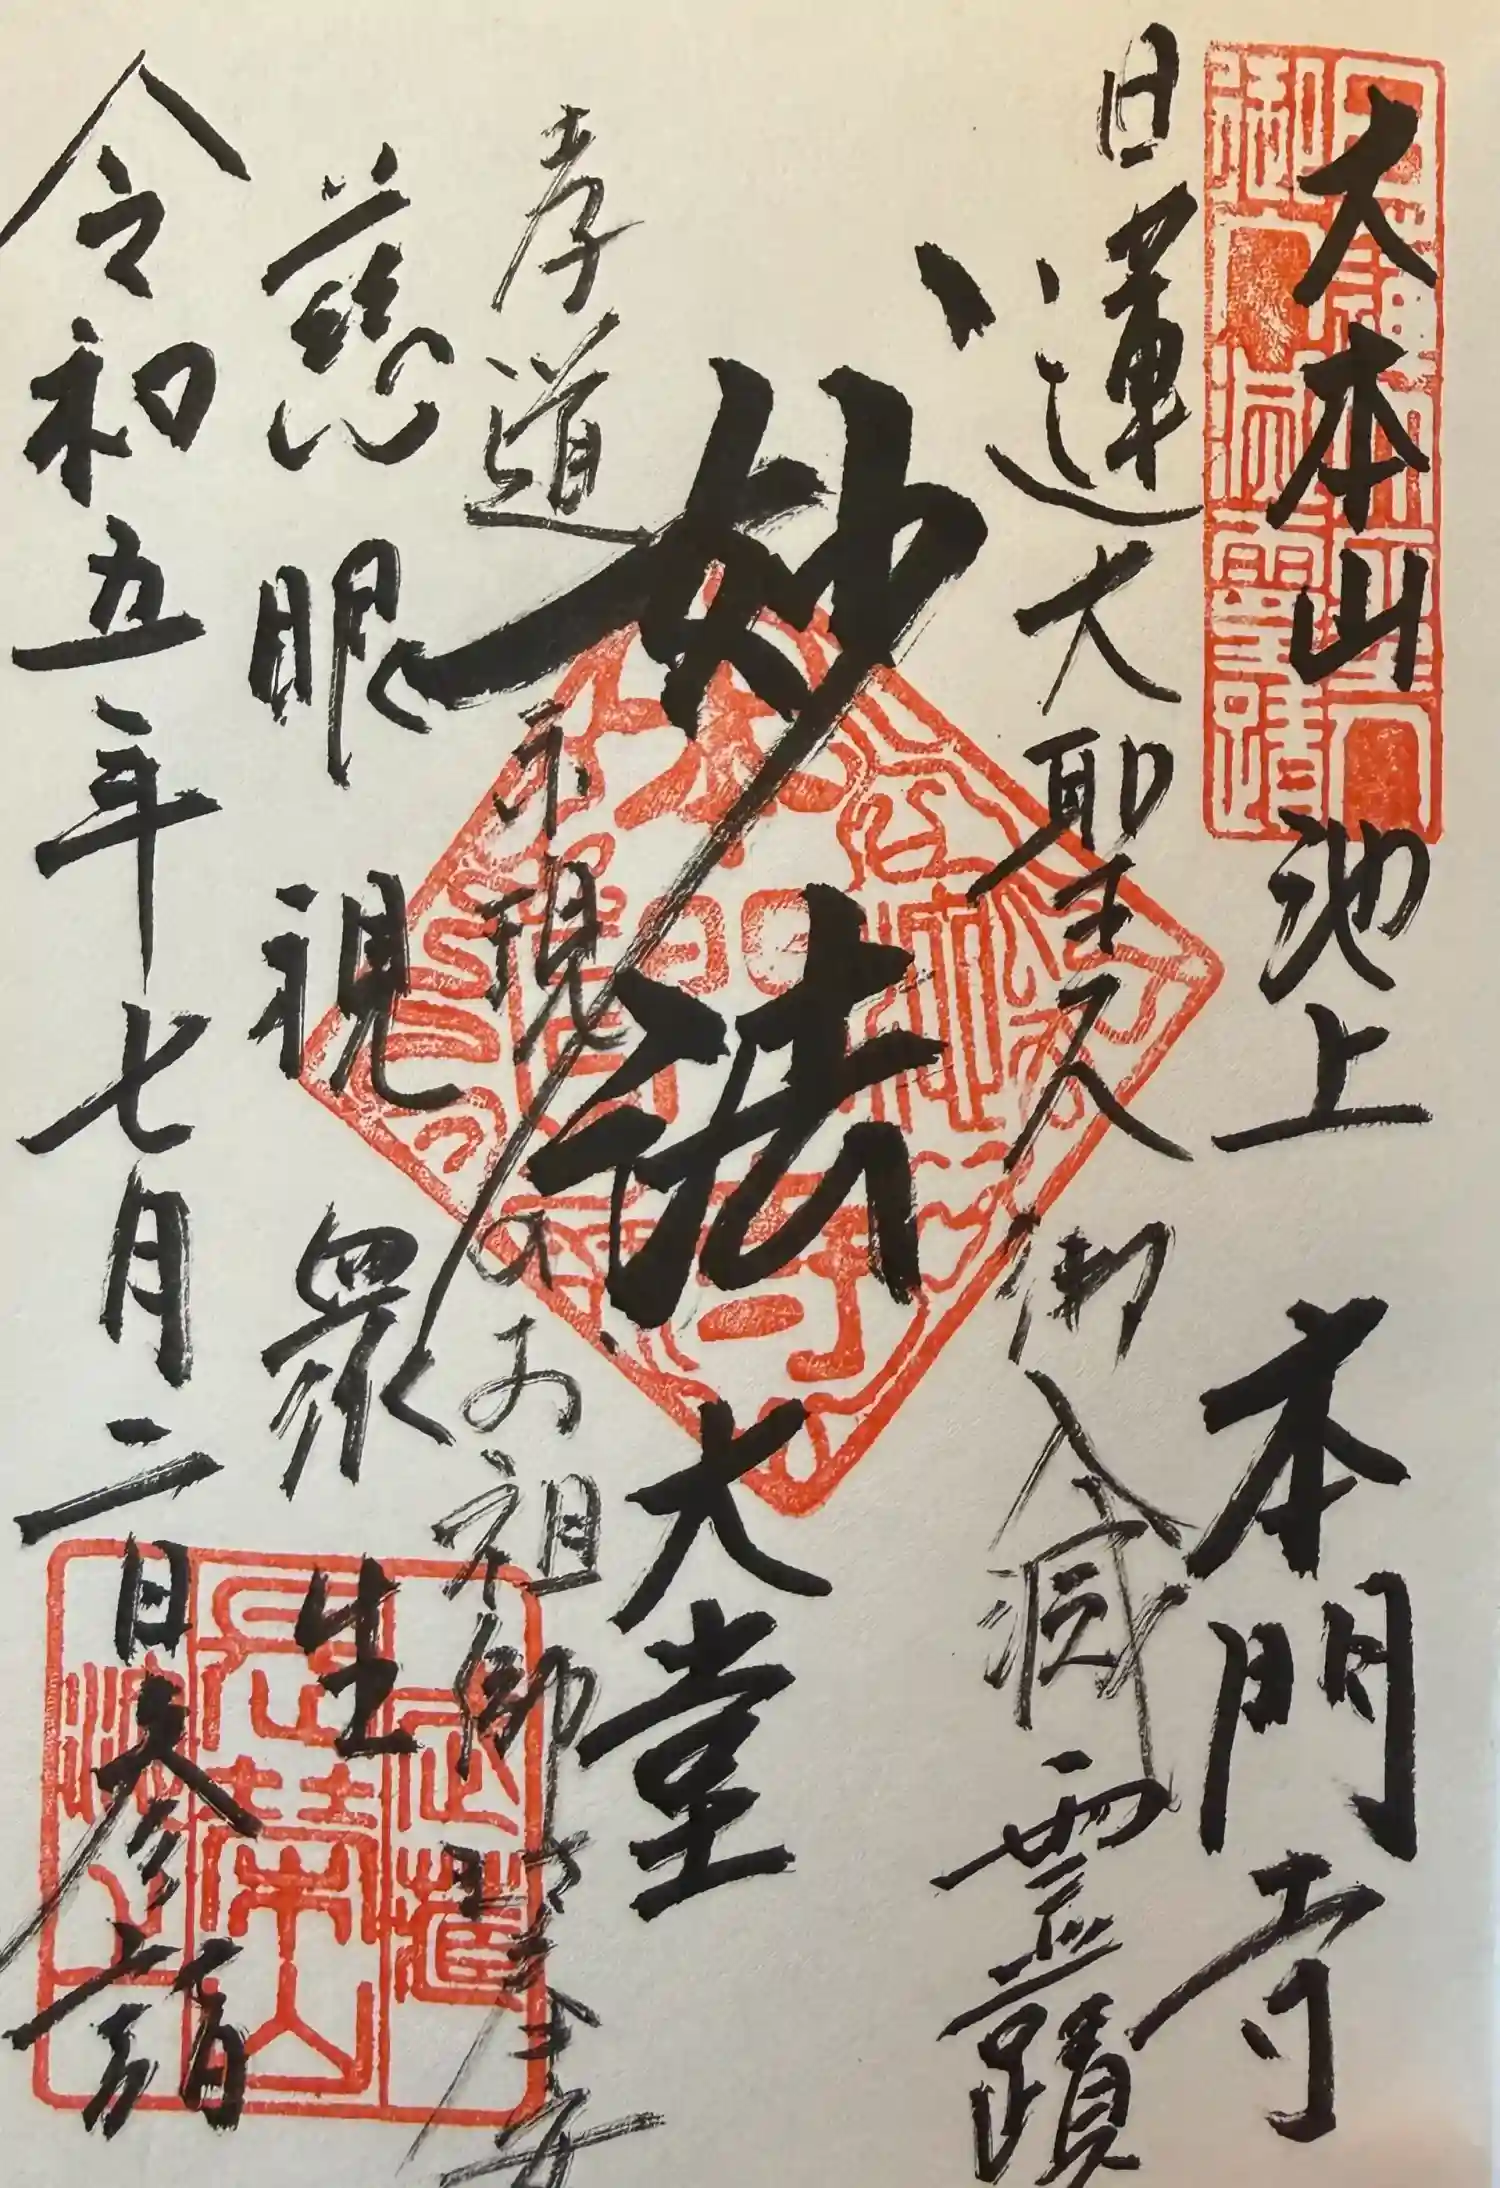 大本山 池上 本門寺
日蓮大聖人御入滅霊蹟
妙法 大堂
孝道示現のお祖師さま奉安
慈眼視衆生
令和五年七月二日参詣